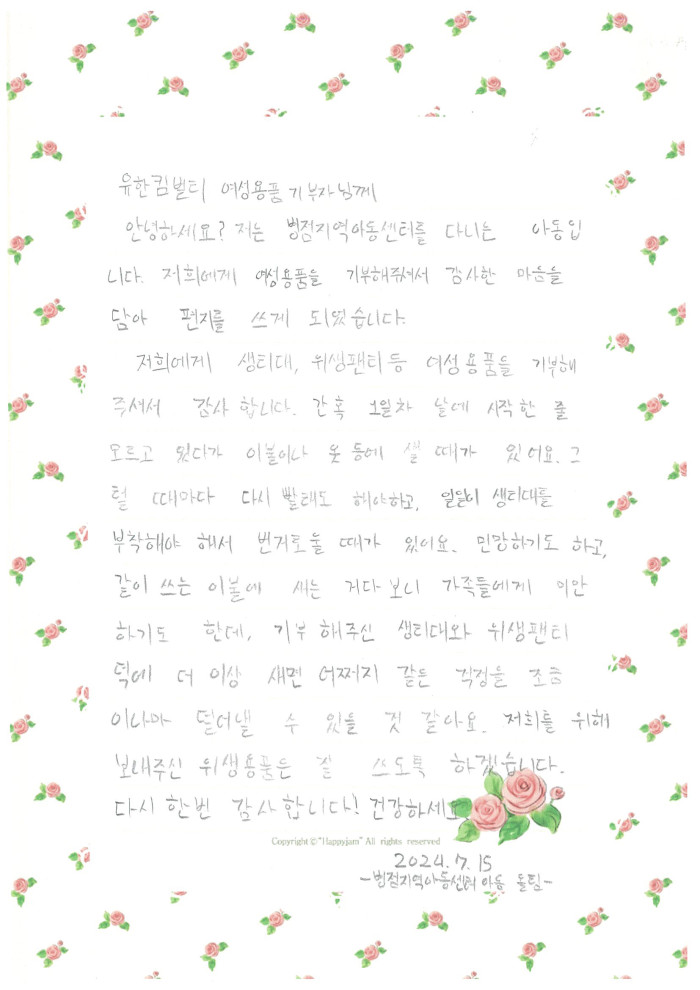 유한킴벌리 여성용품 기부자님께
안녕하세요? 저는 병점지역아동센터를 다니는 아동입
니다. 저희에게 여성용품을 기부해주셔서 감사한 마음을
담아 편지를 쓰게 되었습니다.
저희에게 생리대, 위생팬티 등 여성용품을 기부해
주셔서 감사 합니다. 간혹 1일차 날에 시작한 줄
모르고 있다가 이불이나 옷 등에 샐 때가 있어요. 그
럴 때마다 다시 빨래도 해야하고, 일일이 생리대를
부착해야 해서 번거로울 때가 있어요. 민망하기도 하고,
같이 쓰는 이불에 새는 거다 보니 가족들에게 미안
하기도 한데, 기부 해주신 생리대와 위생팬티
덕에 더 이상 새면 어쩌지 같은 걱정을 조금
이나마 덜어낼 수 있을 것 같아요. 저희를 위해
보내주신 위생용품은 잘 쓰도록 하겠습니다.
다시 한번 감사 합니다! 건강하세요
Copyright ©"Happyjam" All rights reserved
2024.7.15
-병점지역아동센터 아동 올림-